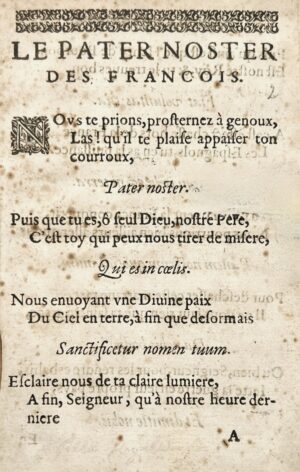 LE PATER NOSTER
DES FRANCOIS.
2
NOVs te prions, prosternez à genoux,
Las! qu'il te plaise appaiser ton
courroux,
Pater noster.
Puis que tu es, ô seul Dieu, nostre Pere,
C'est toy qui peux nous tirer de misere,
Qui es in cœlis.
Nous enuoyant vne Diuine paix
Du Ciel en terre, à fin que desormais
Sanctificetur nomen tuum.
Esclaire nous de ta claire lumiere,
A fin, Seigneur, qu'à nostre heure der-
niere
A